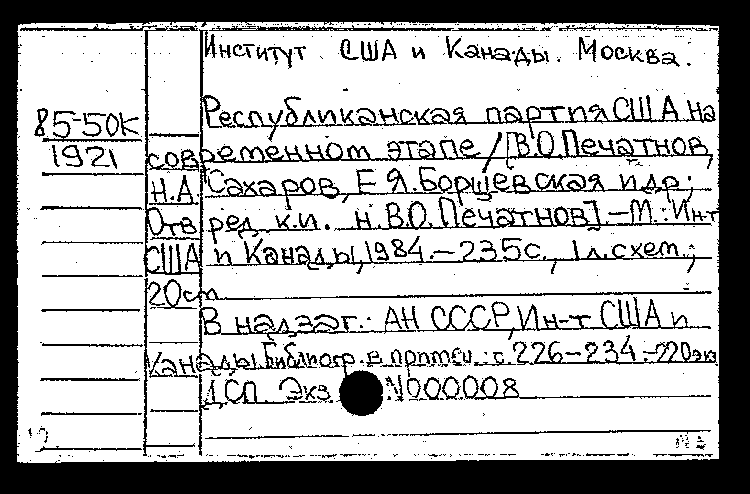 Институт США и Канады. Москва.
85-50К
1921
Республиканская партия США на
современном этапе / [В.О.Печатнов,
Н.А. Сахаров, Е.Я.Борщевская и др.;
Отв ред. к.и. н. В.О. Печатнов]. - М.: Ин-т
США и Канады, 1984. - 235с., 1л.схем.;
20см
В надзаг.: АН СССР, Ин-т США и
Канады. Библиогр. в примеч.: с. 226-234. - 220экз
ДСП. Экз N000008